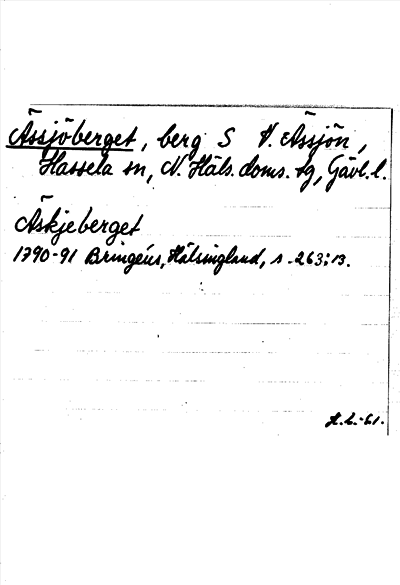 Ässjöberget, berg S V. Ässjön,
Hassela sn, N. Häls. doms. tg, Gävl. l.
Äskjeberget
1790-91 Bringéus, Hälsingland, s. 263; 13.